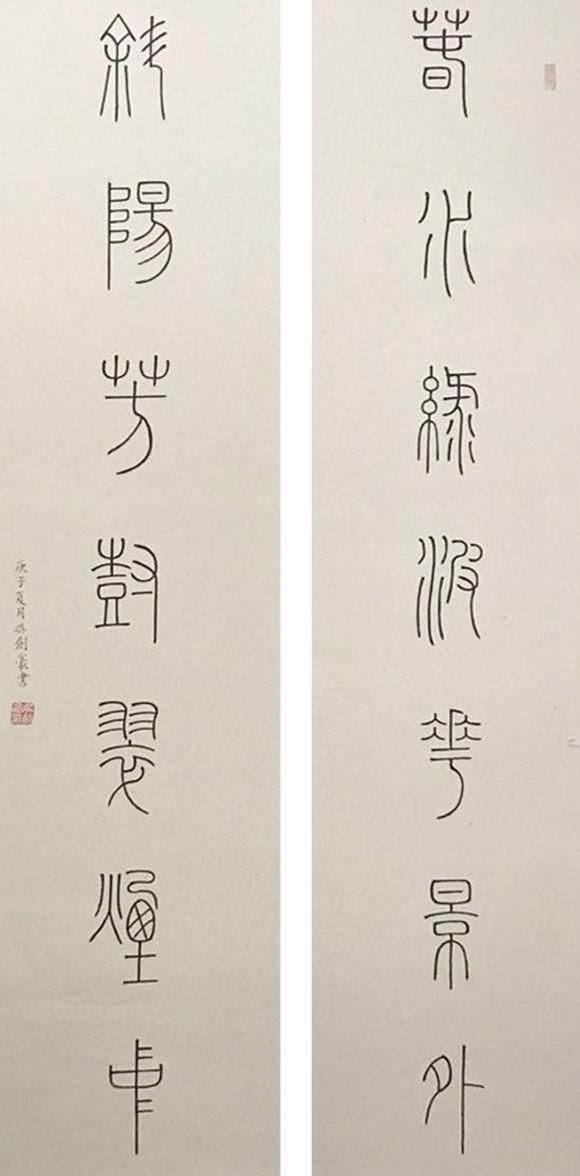 春水綠波花景外
斜陽芳樹翠煙中
庚子夏月劍豪書